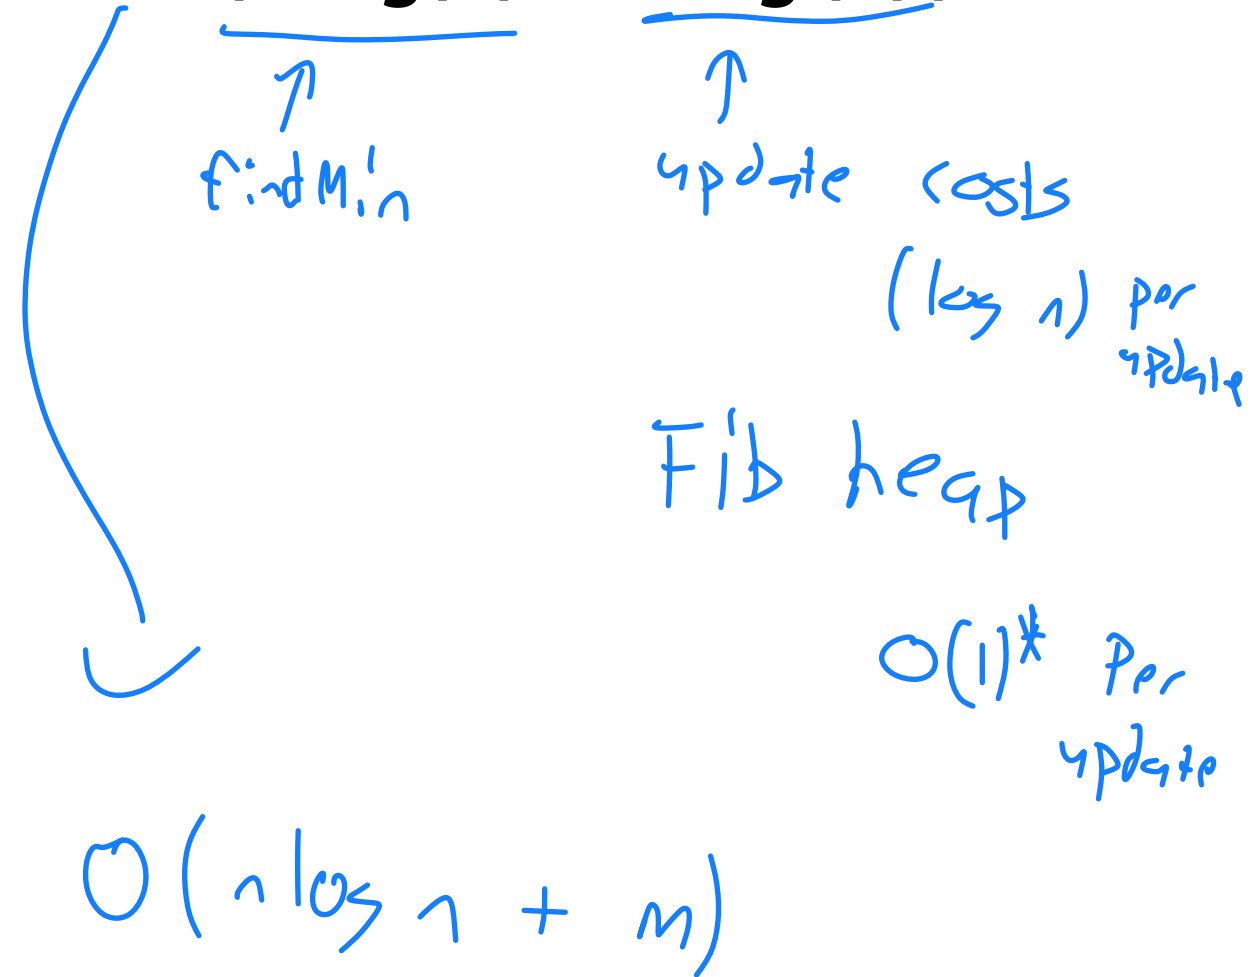 findMin
update costs
(log n) per
update
Fib heap
O(1)* Per
update
O(n log n + m)